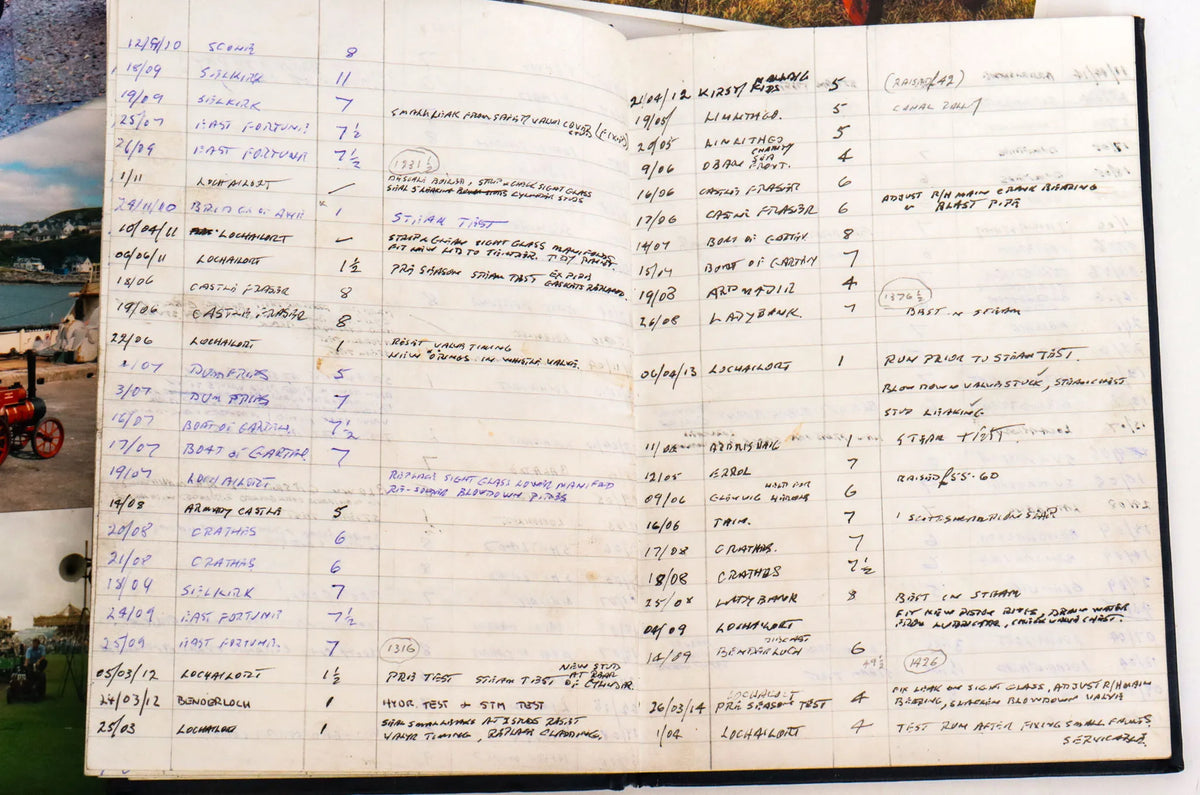 12/9/10 SCONE 8
18/09 SELKIRK 11
19/09 SELKIRK 7
25/09 EAST FORTUNE 7½ SMALL LEAK FROM SAFETY VALVE COVER STUDS (FIXED)
26/09 EAST FORTUNE 7½ (1231½)
1/11 LOCHAILORT ✓ BOILER, STRIP & CHECK SIGHT GLASS
CYLINDER STUDS
1 STEAM TEST
10/04/11 LOCHAILORT ✓ STRIP & CLEAN SIGHT GLASS MANIFOLDS
FIT NEW LID TO TENDER. TIDY PAINT.
04/06/11 LOCHAILORT 1½ PRE SEASON STEAM TEST
GASKETS
18/06 CASTLE FRASER 8
19/06 CASTLE FRASER 8
22/06 LOCHAILORT 1 RESET VALVE TIMING
NEW "O" RINGS IN WHISTLE VALVE.
2/07 DUMFRIES 5
3/07 DUMFRIES 7
16/07 BOAT OF GARTEN 7½
17/07 BOAT OF GARTEN 7
19/07 LOCHAILORT REPLACE SIGHT GLASS LOWER MANIFOLD
RE-SOLDER BLOWDOWN PIPES
14/08 ARMADY CASTLE 5
20/08 CRATHES 6
21/08 CRATHES 6
18/09 SELKIRK 7
24/09 EAST FORTUNE 7½
25/09 EAST FORTUNE. 7 (1316)
05/03/12 LOCHAILORT 1½ PRE TEST STEAM TEST NEW STUD AT REAR OF CYLINDER.
24/03/12 BENDERLOCH 1 HYDR. TEST & STM TEST
25/03 LOCHAILORT 1 SEAL SMALL LEAKS AT STUDS RESET
VALVE TIMING, REPLACE CLADDING.
21/04/12 KIRSTY KIDS MALLAIG 5 (RAISED £42)
19/05 LINLITHGO. 5 CANAL RALLY
20/05 LINLITHGO 5
9/06 OBAN CHARITY SEA FRONT. 4
16/06 CASTLE FRASER 6
17/06 CASTLE FRASER 6 ADJUST R/H MAIN CRANK BEARING
& BLAST PIPE
14/07 BOAT OF GARTEN 8
15/07 BOAT OF GARTEN 7
19/08 4 (1376½)
26/08 LADYBANK 7 BEST IN STEAM
06/04/13 LOCHAILORT 1 RUN PRIOR TO STEAM TEST.
BLOW DOWN VALVE STUCK, STEAM CHEST
STUD LEAKING
1 STEAM TEST.
12/05 ERROL 7 RAISED £55-60
09/06 6
16/06 TAIN. 7
17/08 CRATHES. 7
18/08 CRATHES 7½
25/08 LADYBANK 8 BEST IN STEAM
04/09 LOCHAILORT FIT NEW PISTON RINGS, DRAIN WATER
FROM LUBRICATOR, CHECK VALVE CHEST.
14/09 BENDERLOCH 6 49½ (1426)
26/03/14 LOCHAILORT PRE SEASON TEST 4 FIX LEAK ON SIGHT GLASS, ADJUST R/H MAIN
BEARING, SLACKEN BLOWDOWN VALVE
1/04 LOCHAILORT 4 TEST RUN AFTER FIXING SMALL FAULTS.
SERVICABLE.